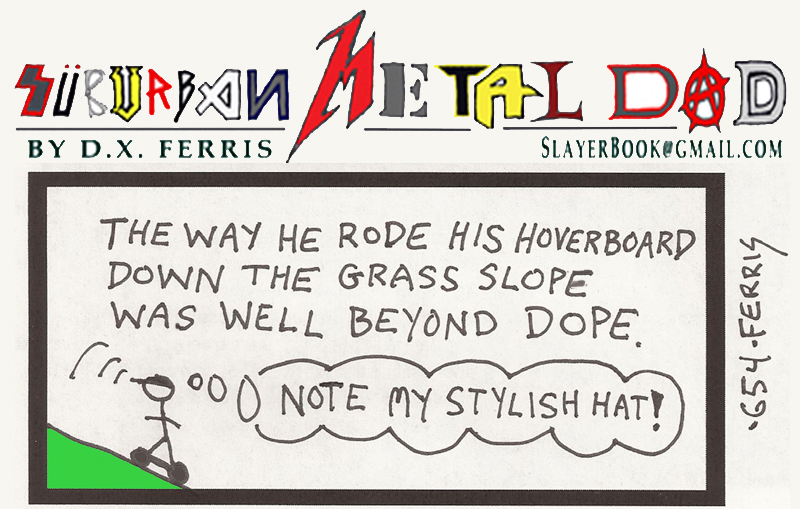 SÜBURBAN METAL DAD
BY D.X. FERRIS
SLAYERBOOK@GMAIL.COM
THE WAY HE RODE HIS HOVERBOARD
DOWN THE GRASS SLOPE
WAS WELL BEYOND DOPE.
NOTE MY STYLISH HAT!
·654·FERRIS